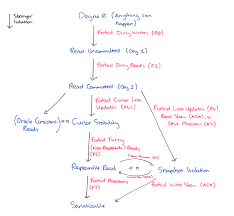 Stronger
Isolation
Degree 0 (Anything can
happen)
Forbid Dirty Writes (P0)
Read Uncommitted (Deg. 1)
Forbid Dirty Reads (P1)
Read Committed (Deg. 2)
Forbid Cursor Lost
Updates (P4C)
Forbid Lost Updates (P4),
Read Skew (A5A), &
(Oracle Consistent
Reads)
Cursor Stability
Forbid Fuzzy
(Non-Repeatable) Reads
(P2)
Repeatable Read
Snapshot Isolation
Forbid Phantoms
(P3)
Forbid Write Skew (A5B)
Serializable